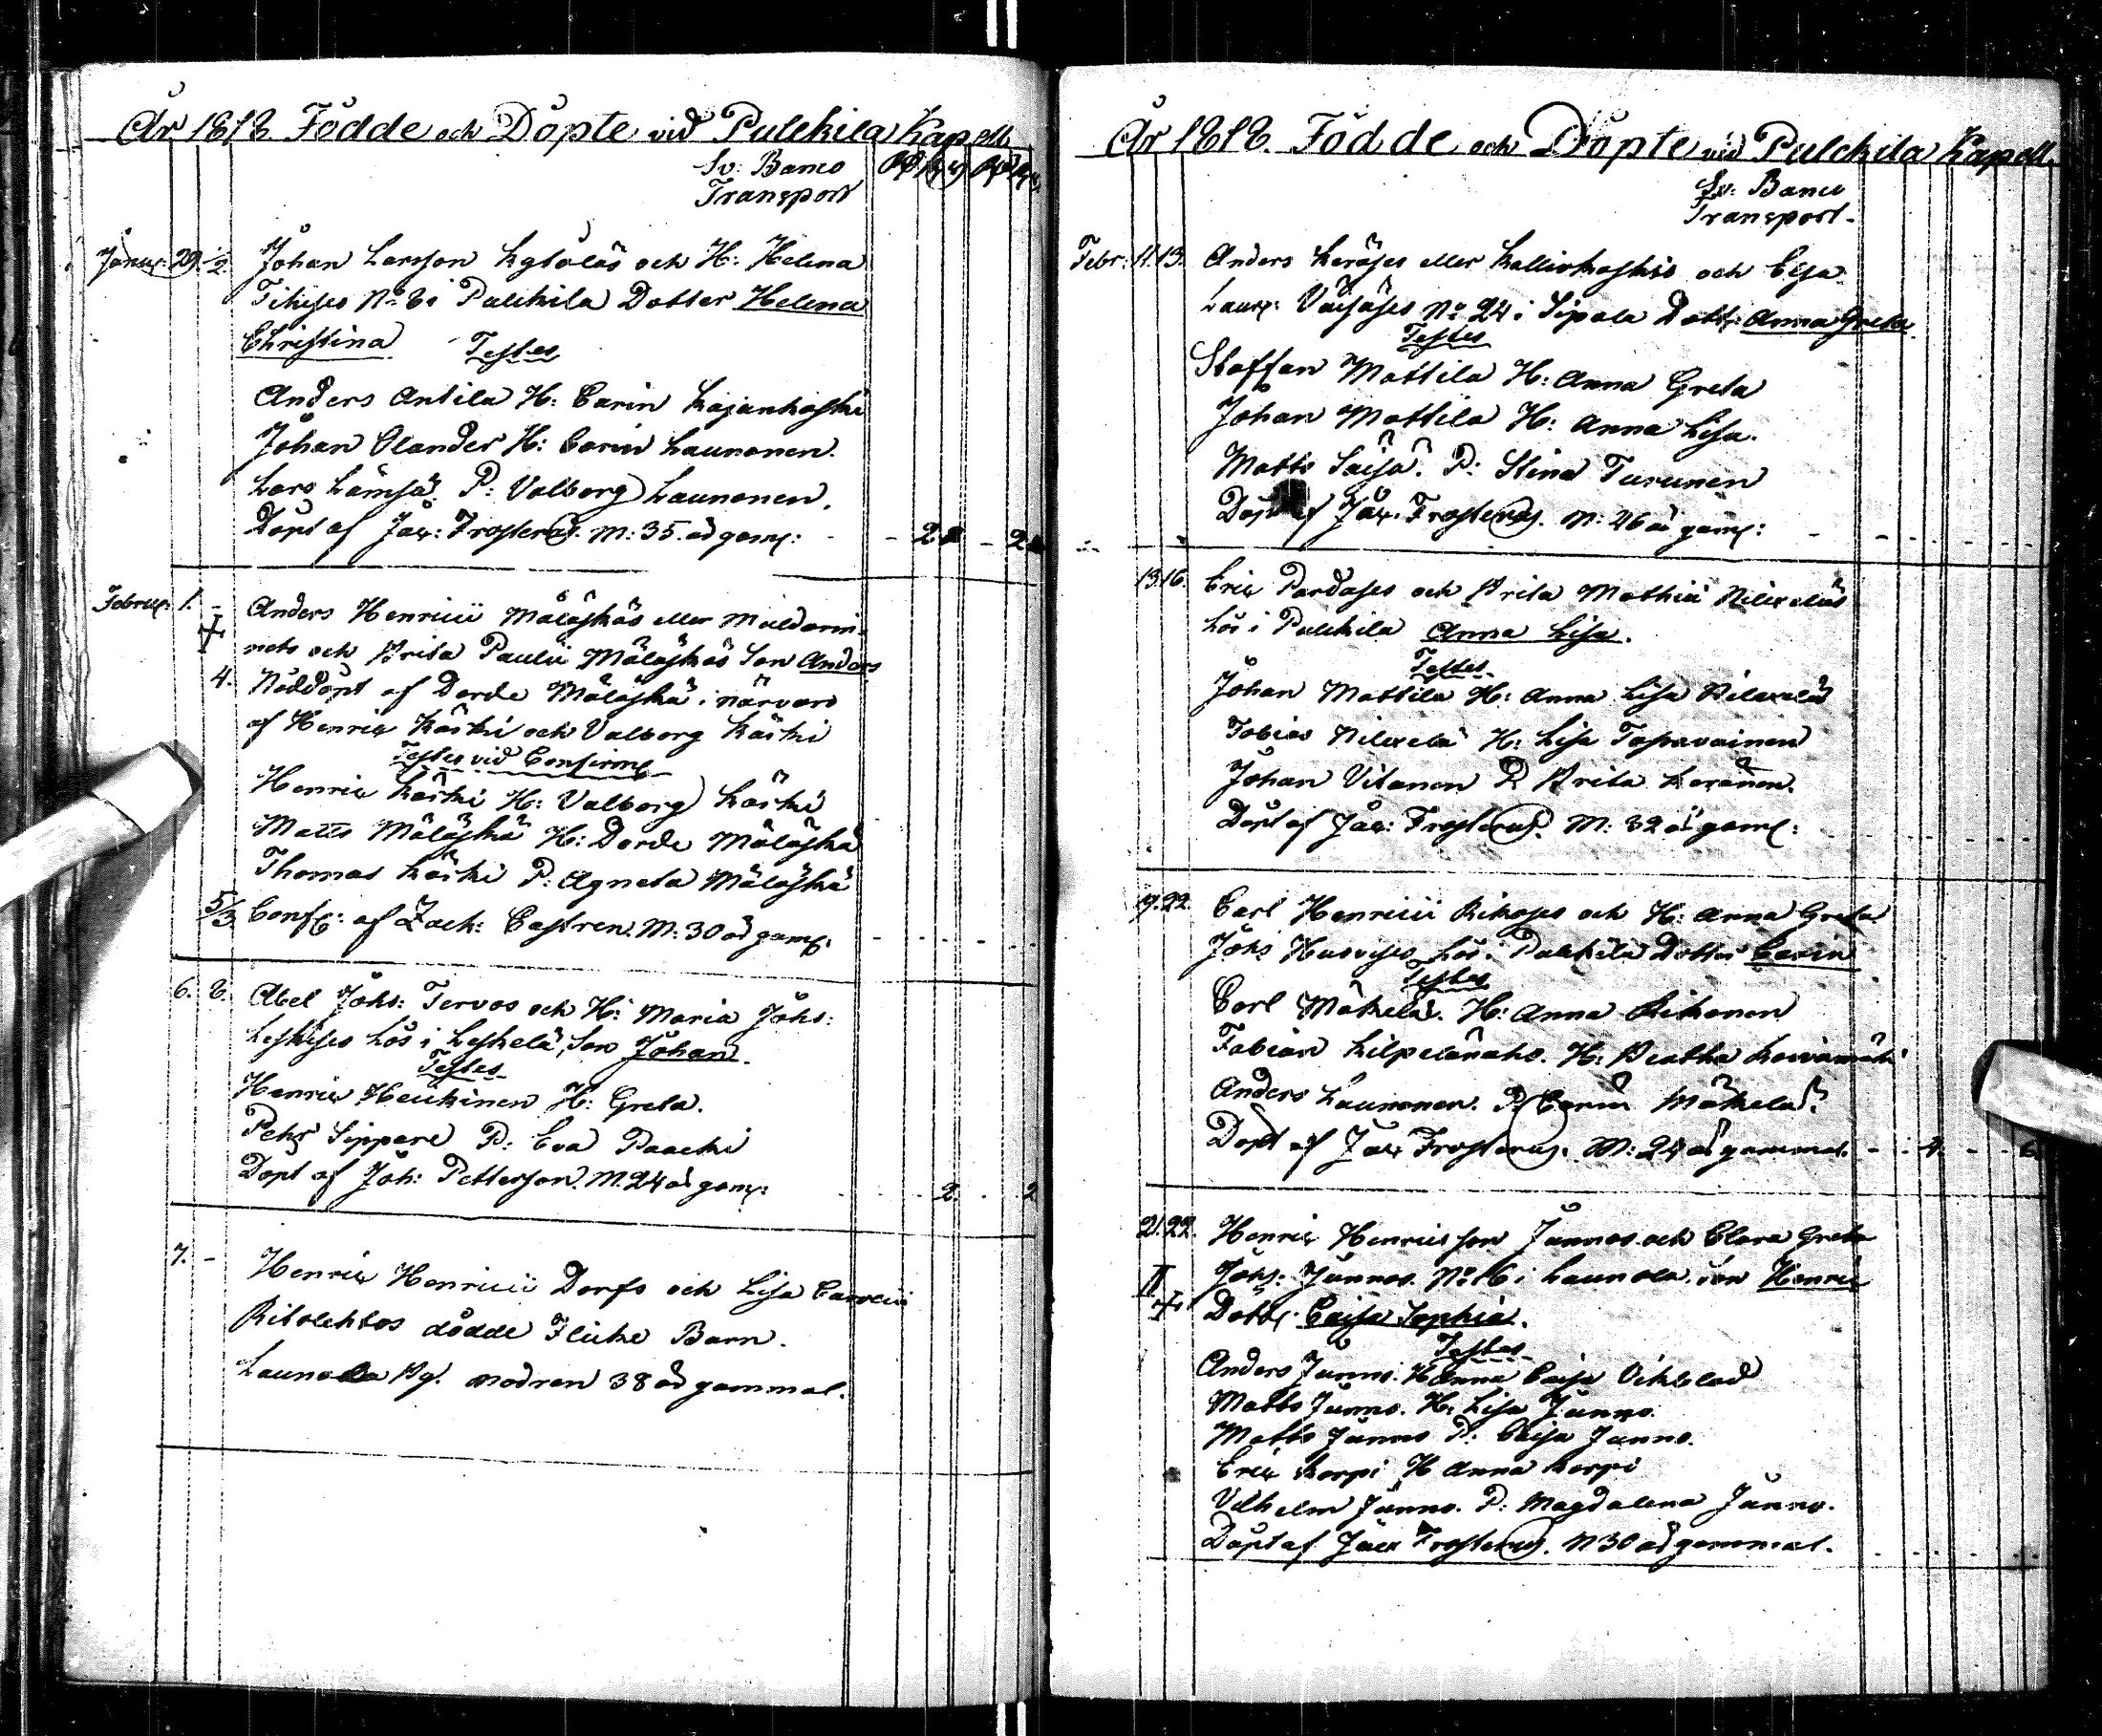 År 1818 Födde och Döpte vid Pulckila Kapell
Sv: Banco
Transport
Januar: 29. 1/2. Johan Larsson och H: Helena
No 6 i Pulckila Dotter Helena
Christina Testes
Anders Antila H: Carin Kajankoski
Johan Olander H: Carin Launonen.
Lars Lämsä. P: Valborg Launonen.
Döpt af Jac: Frosterus. M: 35. åd gaml: - - 2 - 2
Februar: 1. - Anders Henricii Mäläskäs eller
och Brita Paulii Mäläskäs Son Anders
4. Nöddöpt af Dorde Mäläskä i närvaro
af Henric Kärki och Valborg Kärki
Testes vid Confirm:
Henric Kärki H: Valborg Kärki
Matts Mäläskä H: Dorde Mäläskä
Thomas Kärki P: Agneta Mäläskä
5/3 Conf: af Zach: Castren. M: 30 åd gaml.
6. 8. Abel Johs: Tervos och H: Maria Johs:
Lös i Leskelä, Son Johan.
Testes
Henric Heickinen H: Greta.
Pehr Sippare P: Eva Paacki
Döpt af Joh: Pettersson. M. 24 åd gaml: 2. 2
7. - Henric Henricii Dorfs och Lisa
Ritolehtos dödde Flicke Barn.
Launola By. modren 38 åd gammal.
År 1818. Födde och Döpte vid Pulckila Kapell.
Sv: Banco
Transport.
Febr: 11. 13. Anders eller och Elsa
Laur: No 24 i Sipola Dott: Anna Greta.
Testes
Staffan Mattila H: Anna Greta
Johan Mattila H: Anna Lisa.
Matts P: Stina Turunen
Döpt af Jac: Frosterus. M: 26 åd gaml:
13. 16. Eric Pardases och Brita Mathiæ Nilexeläs
Lös i Pulckila Anna Lisa.
Testes
Johan Mattila H: Anna Lisa Nilexelä
Tobias Nilexelä H: Lisa Tapavainen
Johan Vitanen P Brita Keränen.
Döpt af Jac: Frosterus. M: 32 åd gaml:
22. Carl Henricii Rikases och H: Anna Greta
Johs Lös i Pulckila Dotter Carin
Testes
Carl Mäkelä. H: Anna Rikanen
Fabian Kilpelänaho. H: Beatha Koivumäki
Anders Launonen. P: Carin Mäkelä.
Döpt af Jac Frosterus. M: 24 åd gammal. - - 4. - - 6.
21. 22. Henric Henricsson Junnos och Clara Greta
II Johs: Junnos. No 16 i Launola. Son Henric
+ Dott: Caisa Sophia.
Testes
Anders Junno. H Anna Caisa Vikblad
Matts Junno. H: Lisa Junno.
Matts Junno P: Caisa Junno.
Eric Korpi H Anna Korpi
Vilhelm Junno. P: Magdalena Junno.
Döpt af Jac Frosterus. M 30 åd gammal.